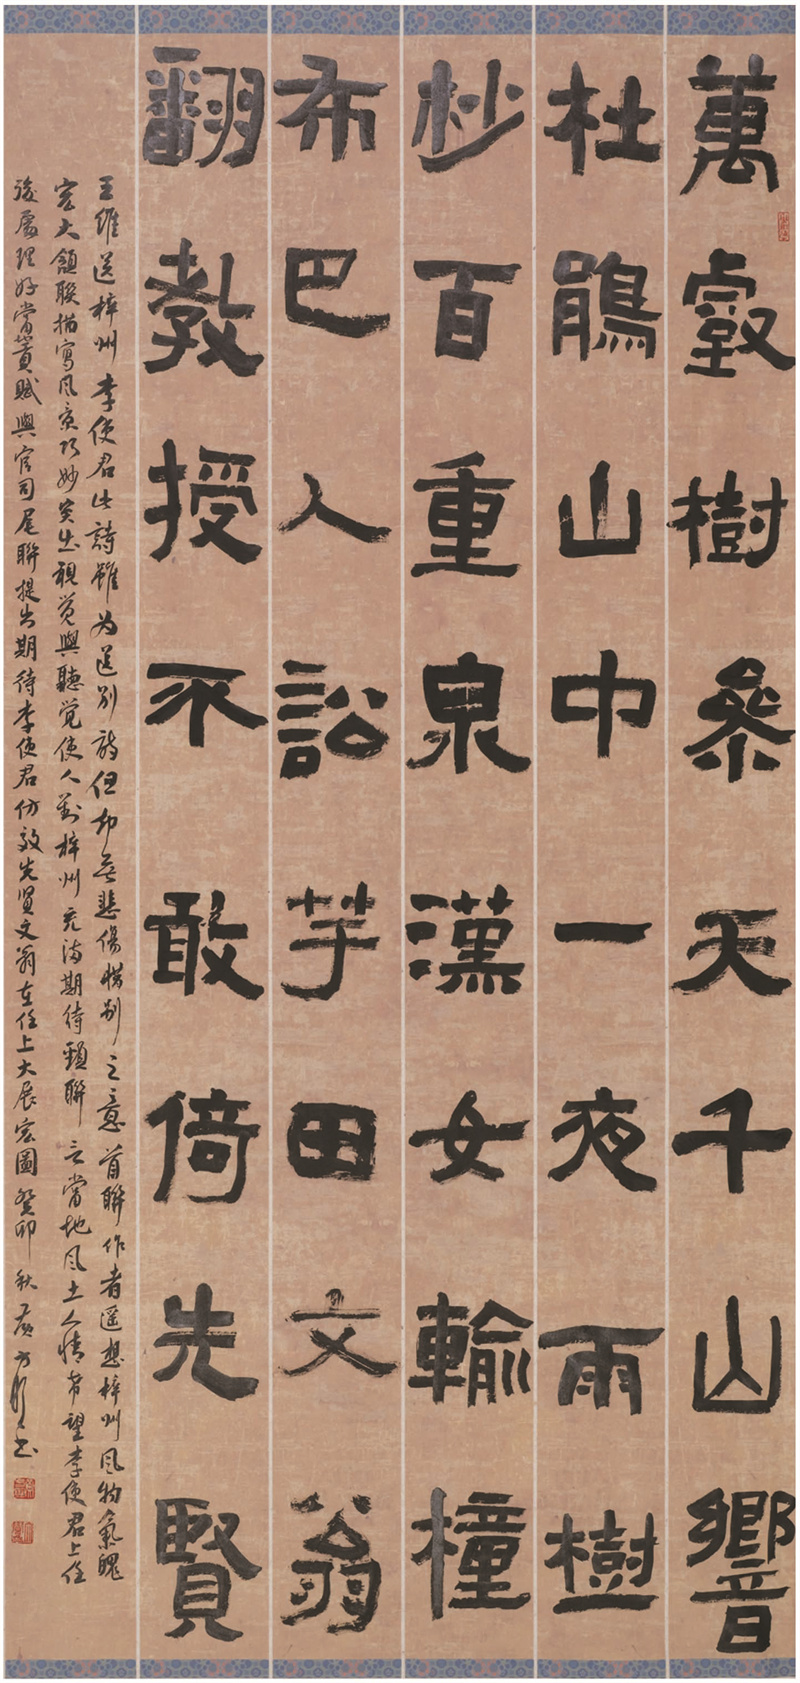 萬壑樹參天千山響
杜鵑山中一夜雨樹
杪百重泉漢女輸橦
布巴人訟芋田文翁
翻教授不敢倚先賢
王維送梓州李使君此詩雖为送别詩但却無悲傷惜别之意首聯作者遥想梓州风物氣魄
宏大頷聯描寫风景巧妙突出視觉與聽觉使人對梓州充满期待頸聯言當地风土人情希望李使君上任
後處理好當賦與官司尾聯提出期待李使君仿效先贤文翁在任上大展宏圖癸卯秋